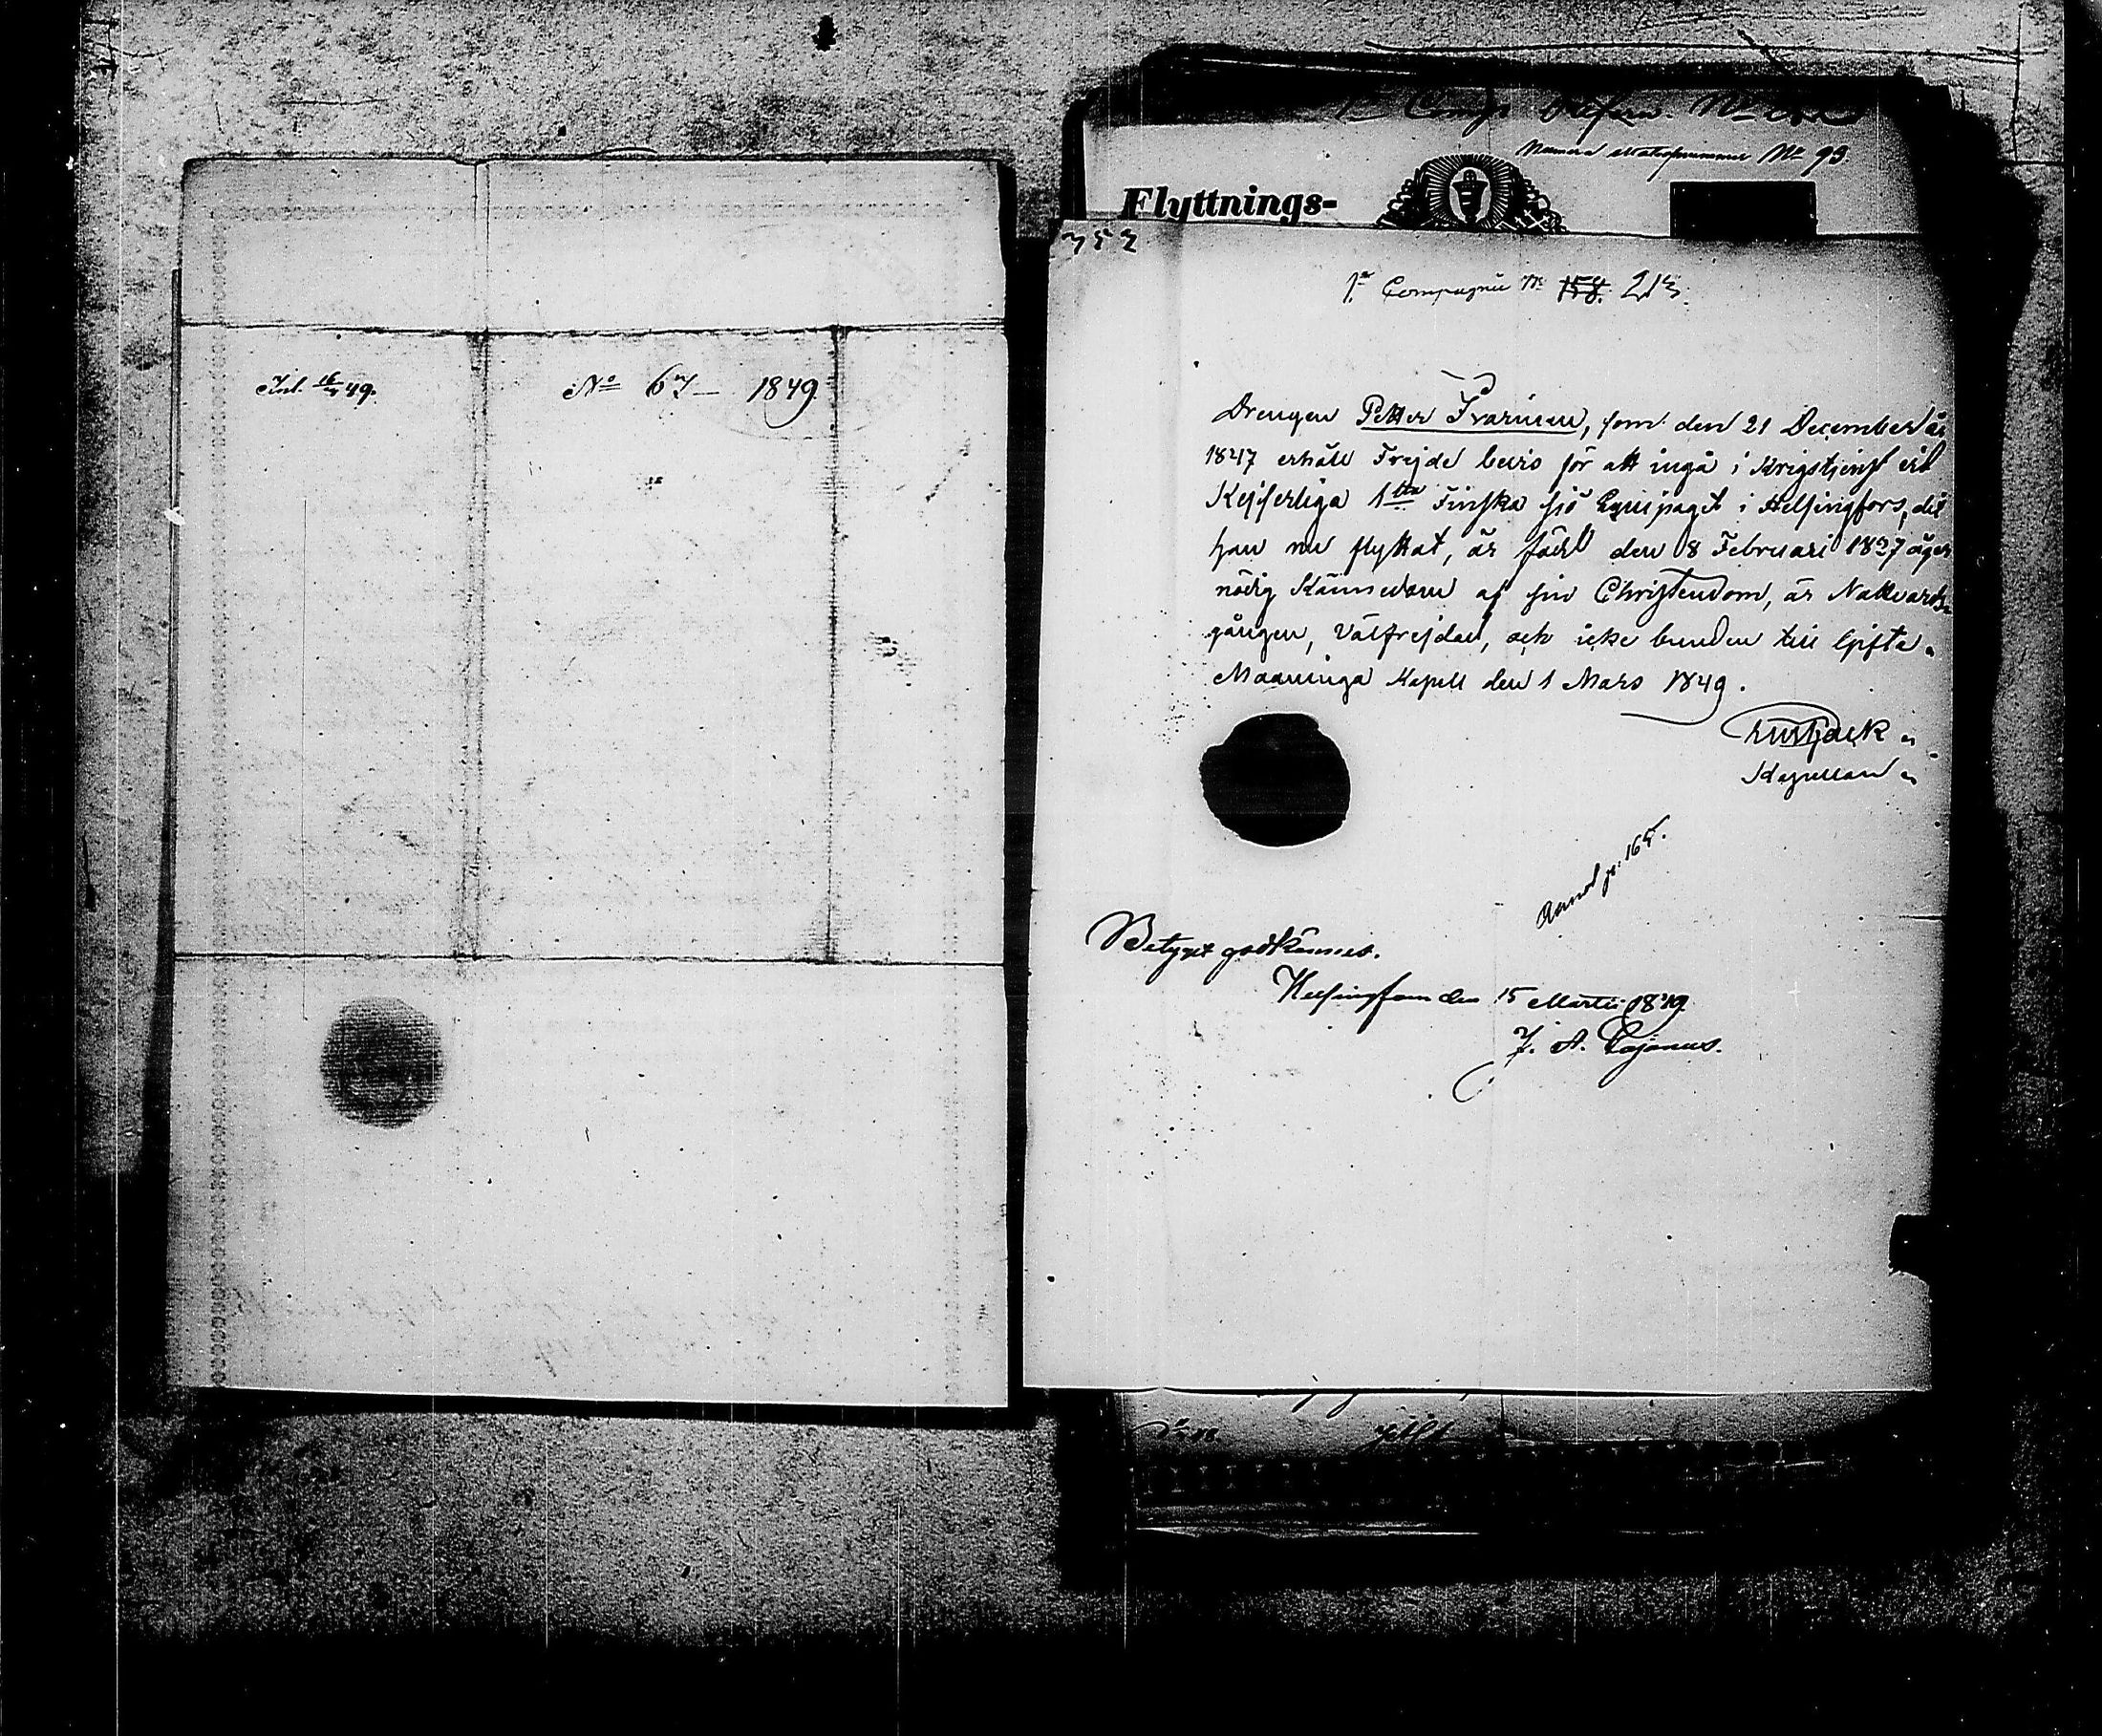 Inl. 16/4 49.
No 67 — 1849
Numera
No 93.
Flyttnings-
352
1a Compagnie No 158. 213.
Drengen Petter Ivarinen, som den 21 December år
1847 erhåll Frejde bevis för att ingå i Krigstjenst vid
Kejserliga 1sta Finska sjö Equipaget i Helsingfors, dit
han nu flyttat, är född den 8 Februari 1827 äger
nödig Kännedom af sin Christendom, är Nattvards-
gången, Välfrejdad, och icke bunden till Gifte.
Maaninga Kapell den 1 Mars 1849.
Kapellan
p: 165.
Betyget godkännes.
Helsingfors den 15 Martii 1849
J. A. Cajanus.